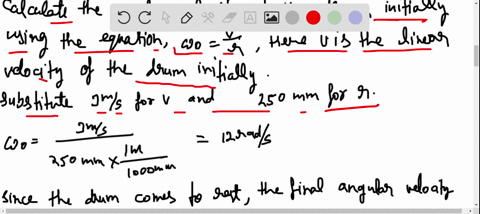 Calculate the initially
using the equation, ω0 = v/r, Here v is the linear
velocity of the drum initially.
Substitute 3m/s for v and 250 mm for r.
ω0 = 3m/s / 250 mm × 1m/1000mm = 12 rad/s
since the drum comes to rest, the final angular velocity